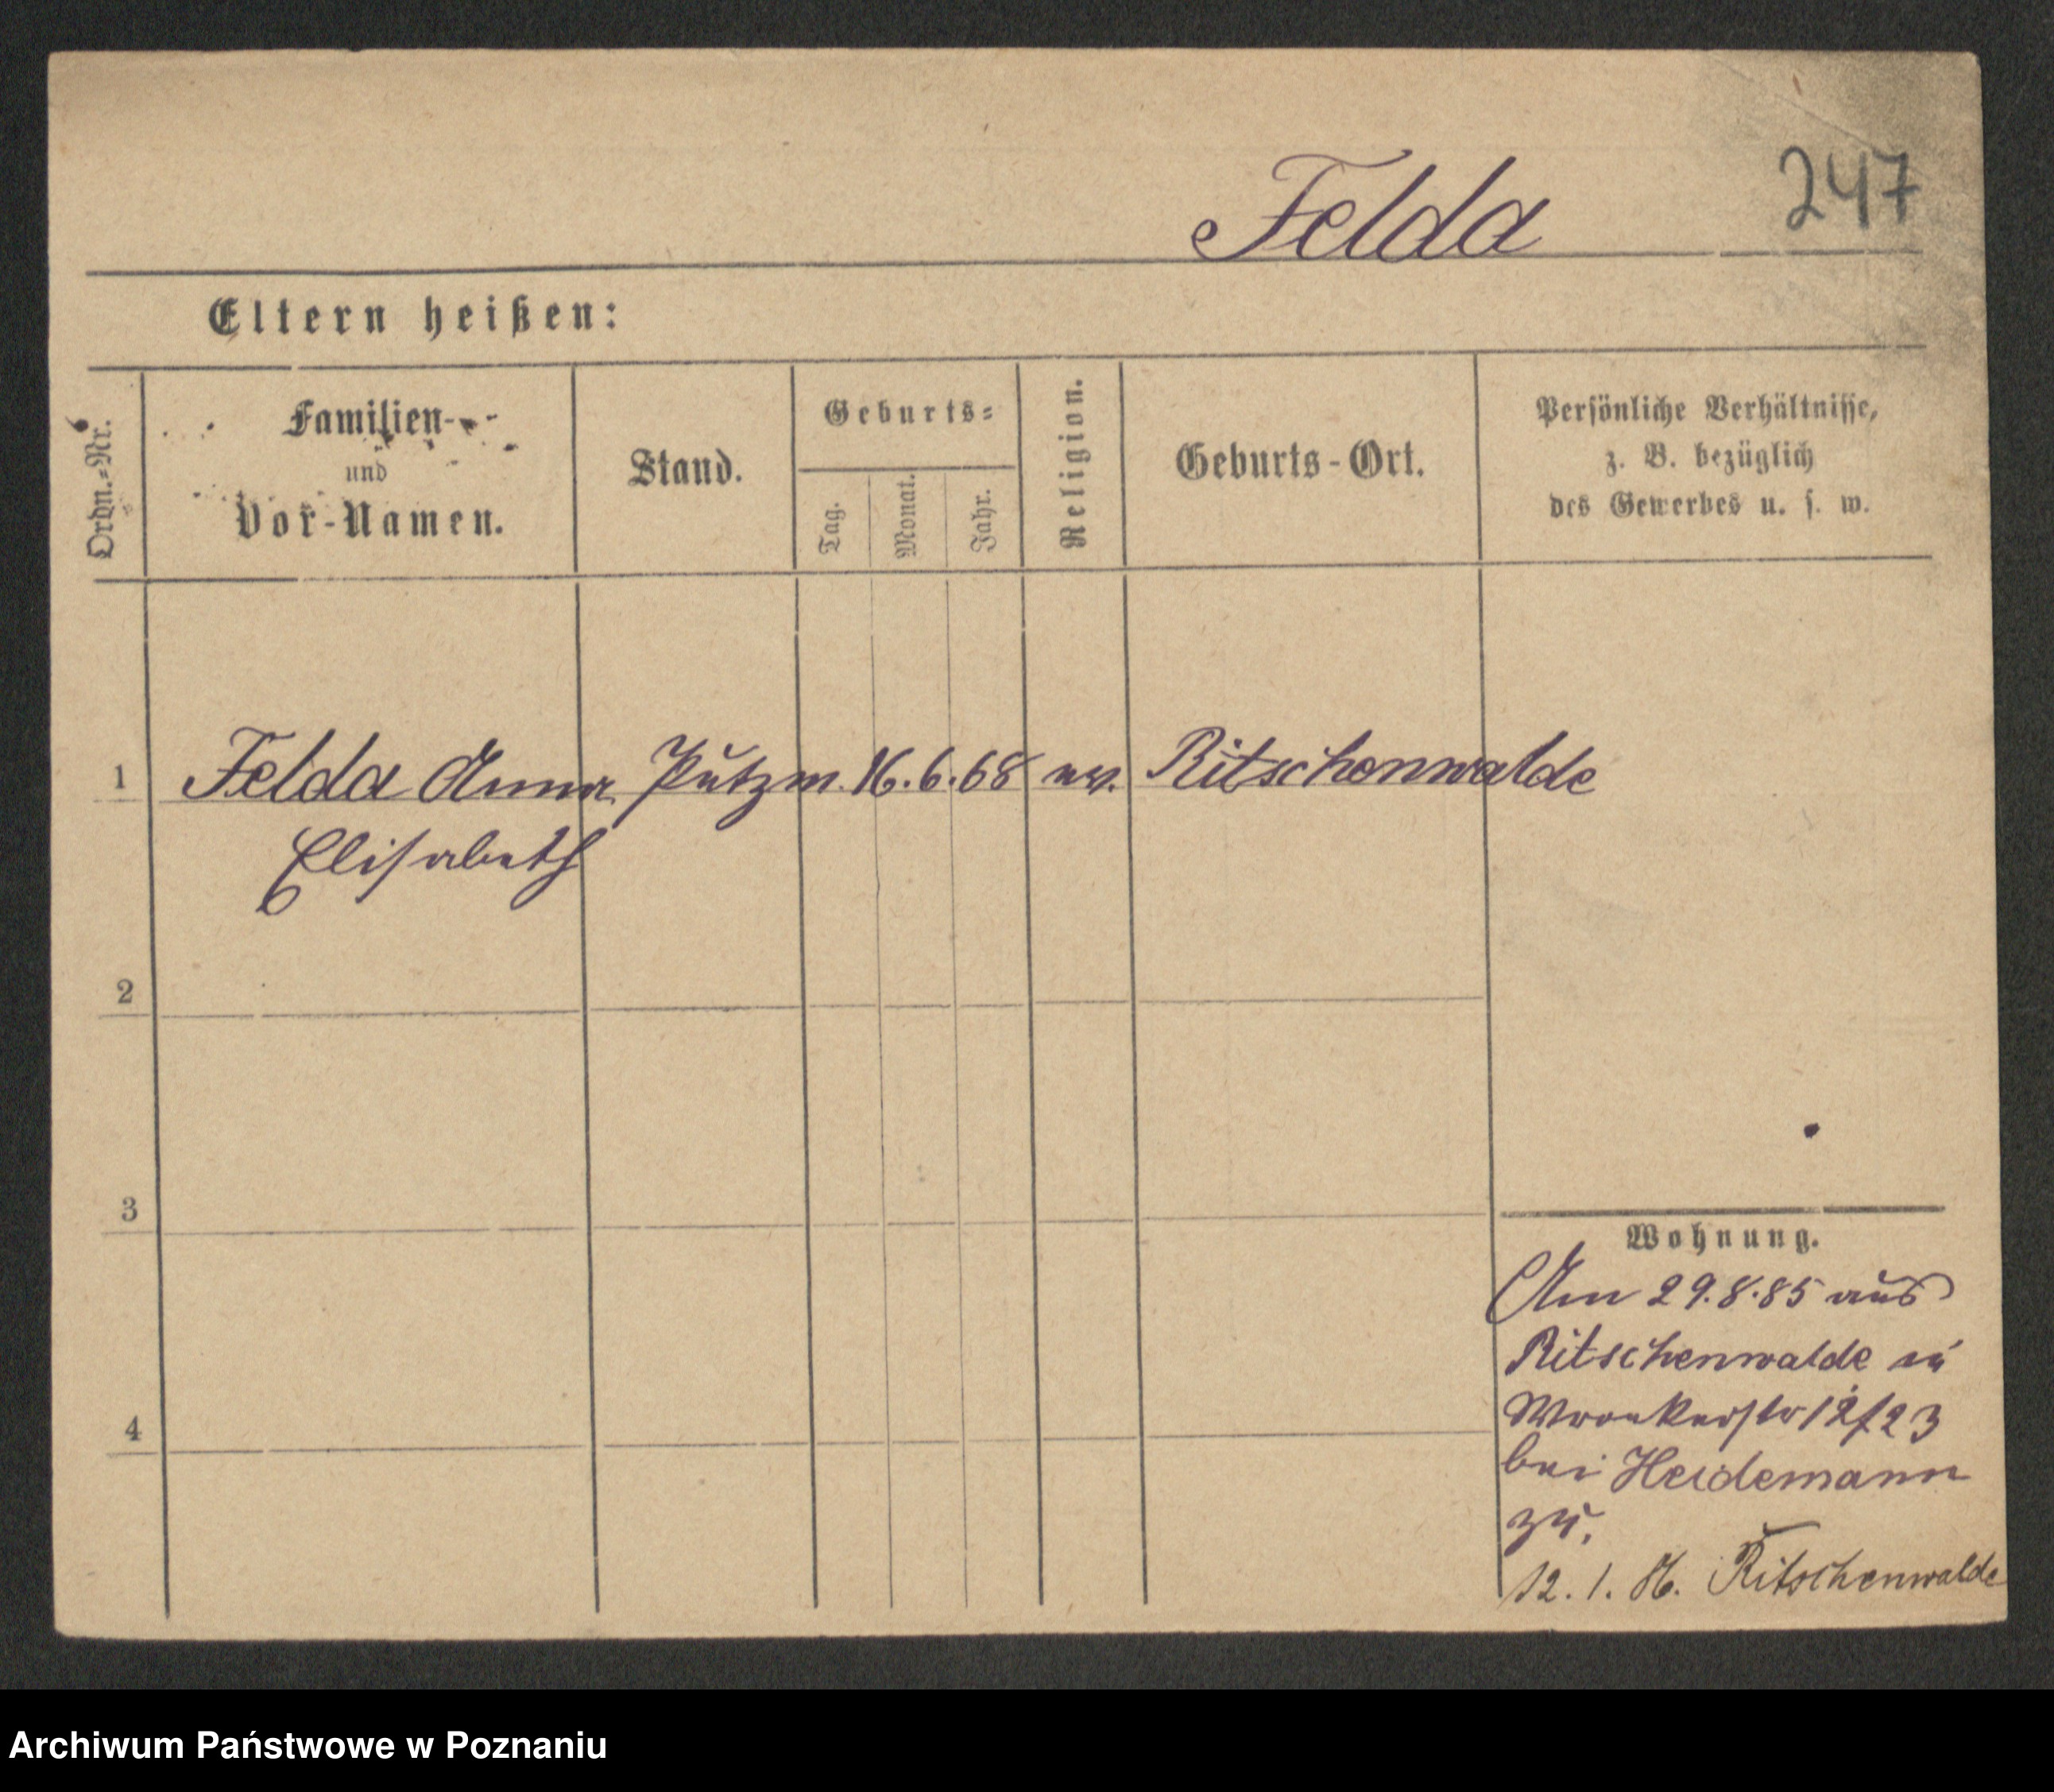 Felda 247
Eltern heißen:
Ordn.-Nr. Familien- und Vor-Namen. Stand. Geburts- Tag. Monat. Jahr. Religion. Geburts-Ort. Persönliche Verhältnisse, z. B. bezüglich des Gewerbes u. s. w.
1 Felda Anna Putzm. 16. 6. 68 ev. Ritschenwalde
Elisabeth
2
3
4
Wohnung.
Am 29.8.85 aus
Ritschenwalde
Wronkerstr
bei Heidemann
zu.
12. 1. 86. Ritschenwalde
Archiwum Państwowe w Poznaniu